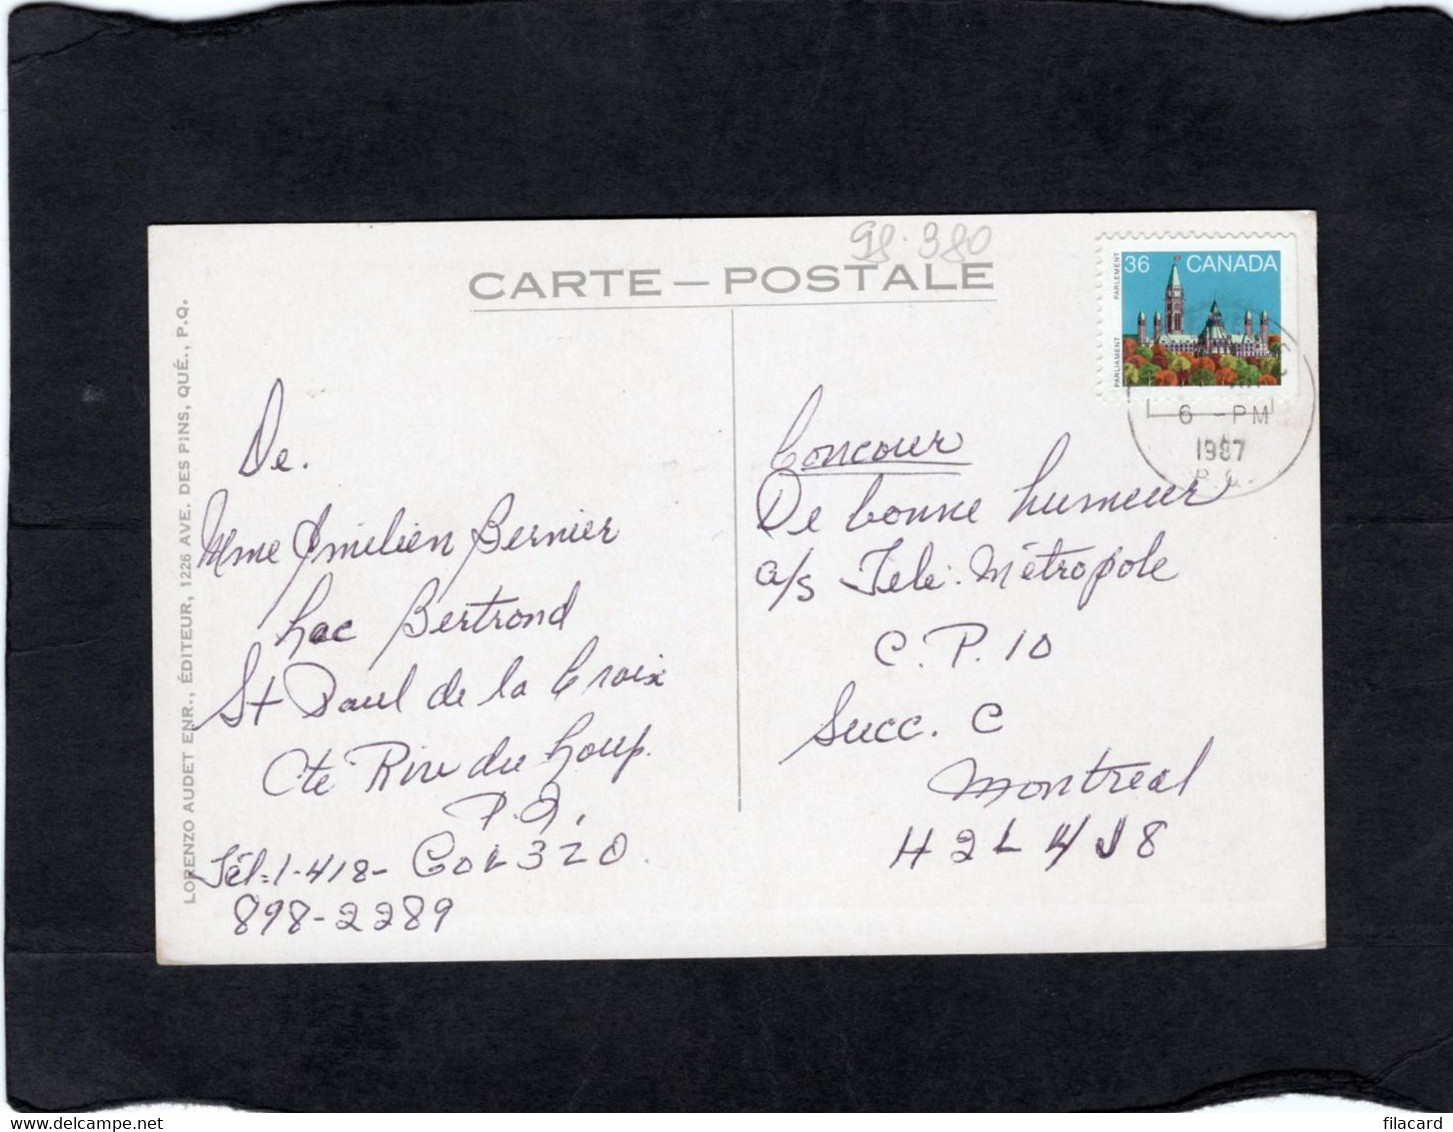 98.380
CARTE — POSTALE
36 CANADA
PARLIAMENT PARLEMENT
6 - PM
1987
LORENZO AUDET ENR., ÉDITEUR, 1226 AVE. DES PINS, QUÉ., P.Q.
De.
Mme Émilien Bernier
Lac Bertrond
St Paul de la Croix
Cte Riv du Loup.
P.Q.
Tél: 1-418- G0L 3Z0.
898-2289
Concour
De bonne humeur
a/s Télé-Métropole
C.P. 10
Succ. C
Montreal
H2L 4J8
www.delcampe.net
filacard